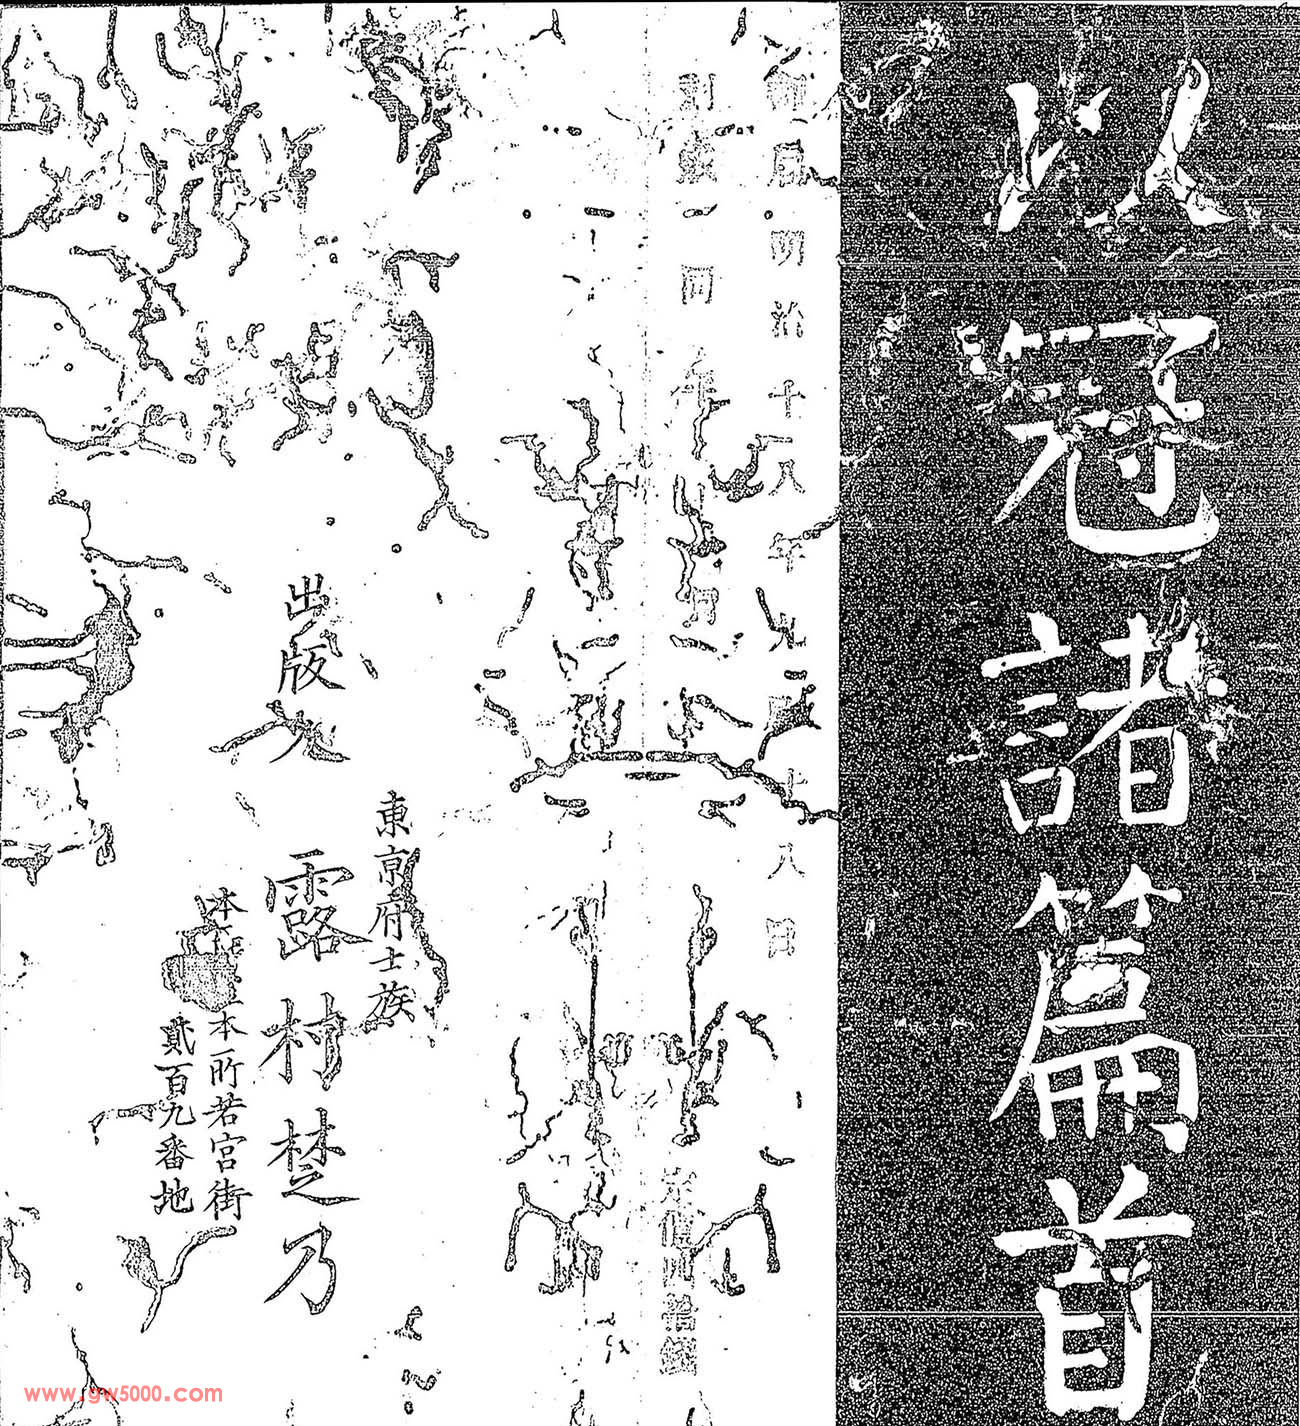 以冠諸篇首
御屆明治十八年九月十八日
刻成同年月
定價
東京府士族
出版人
露村楚乃
本所若宮街
貳百九番地
www.gw5000.com